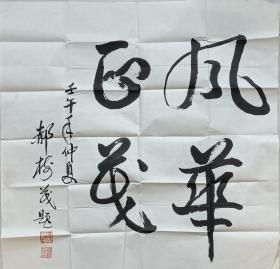 风華
正茂
壬午年仲夏
郝梅茂题